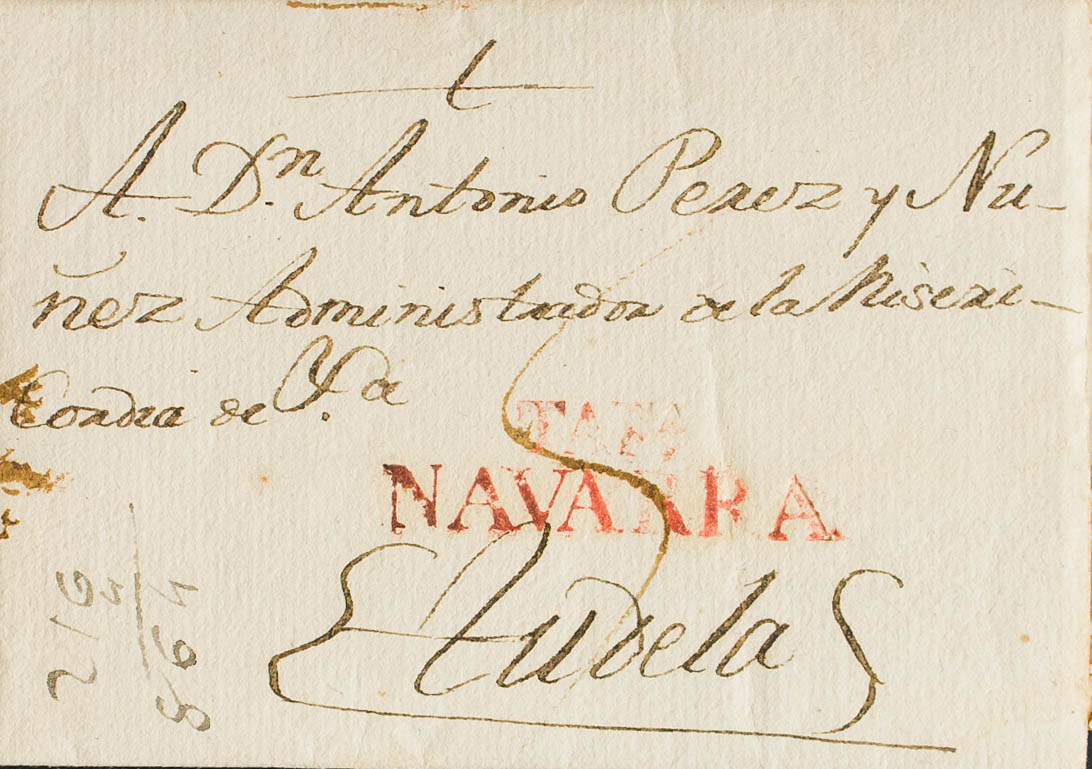 A. Dn. Antonio Perez y Nu-
ñez Administrador de la Miseri-
Cordia de
TAFA
NAVARRA
tudela
5